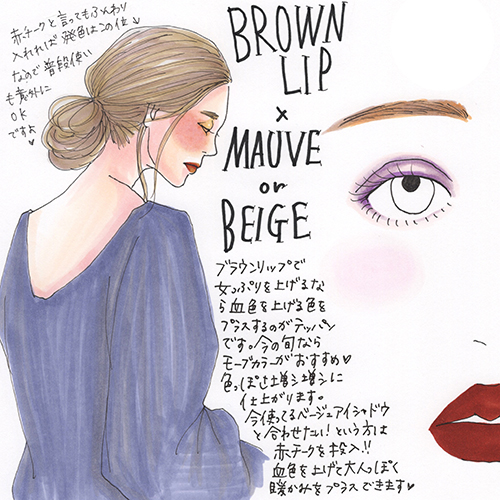 赤チークと言ってもふんわり
入れれば発色はこの位
なので普段使い
も意外に
OK
ですよ
♥
BROWN
LIP
×
MAUVE
or
BEIGE
ブラウンリップで
女っぷりを上げるな
ら血色を上げる色を
プラスするのがテッパン
です。今の旬なら
モーブカラーがおすすめ♥
色っぽさ増し増しに
仕上がります。
今使ってるベージュアイシャドウ
と合わせたい!という方は
赤チークを投入!!
血色を上げて大人っぽく
暖かみをプラスできます♥